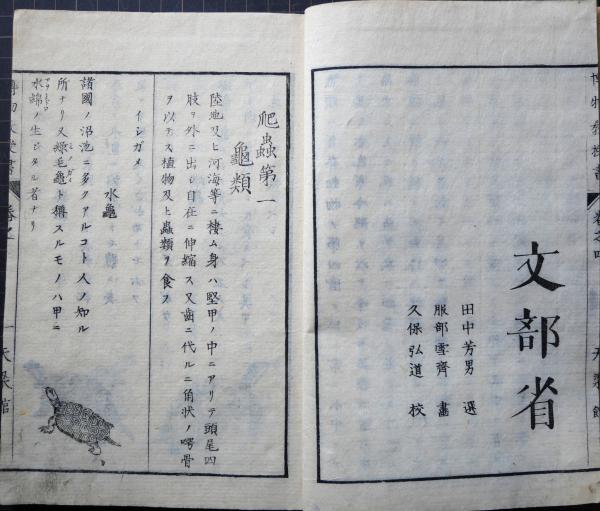 文部省
田中芳男 選
服部雪齊 畫
久保弘道 校
卷之四
爬蟲第一
龜類
陸地及ヒ河海等ニ棲ム身ハ堅甲ノ中ニアリテ頭尾四
肢ヲ外ニ出シ自在ニ伸縮ス又齒ニ代ルニ角状ノ腭骨
ヲ以テス植物及ヒ蟲類ヲ食ス
イシガメ
水龜
諸國ノ沼池ニ多クアルコト人ノ知ル
所ナリ又緑毛龜ト稱スルモノハ甲ニ
水綿ノ生シタル者ナリ
一